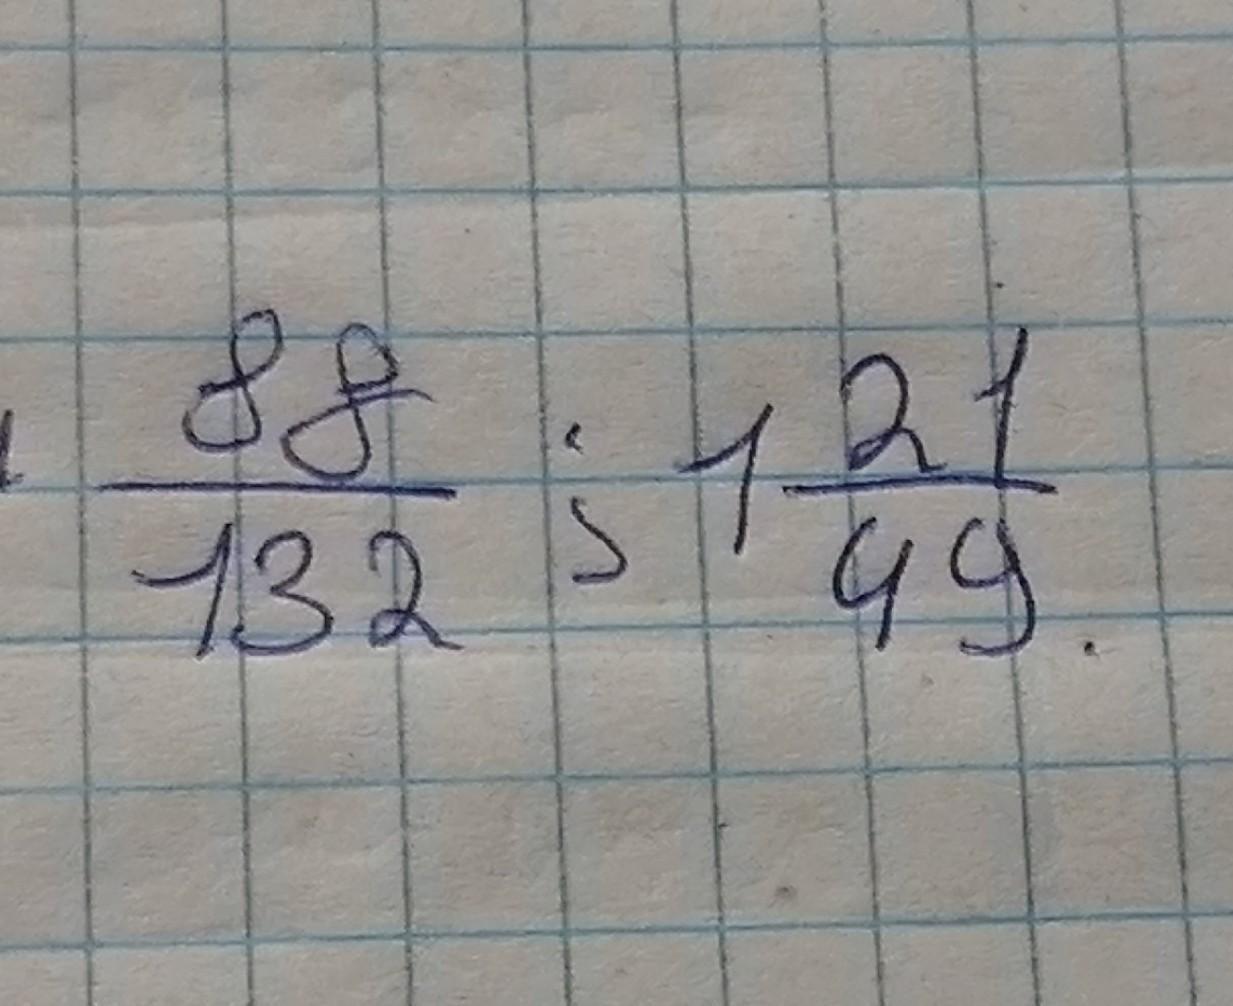 88/132 ; 1 21/49.